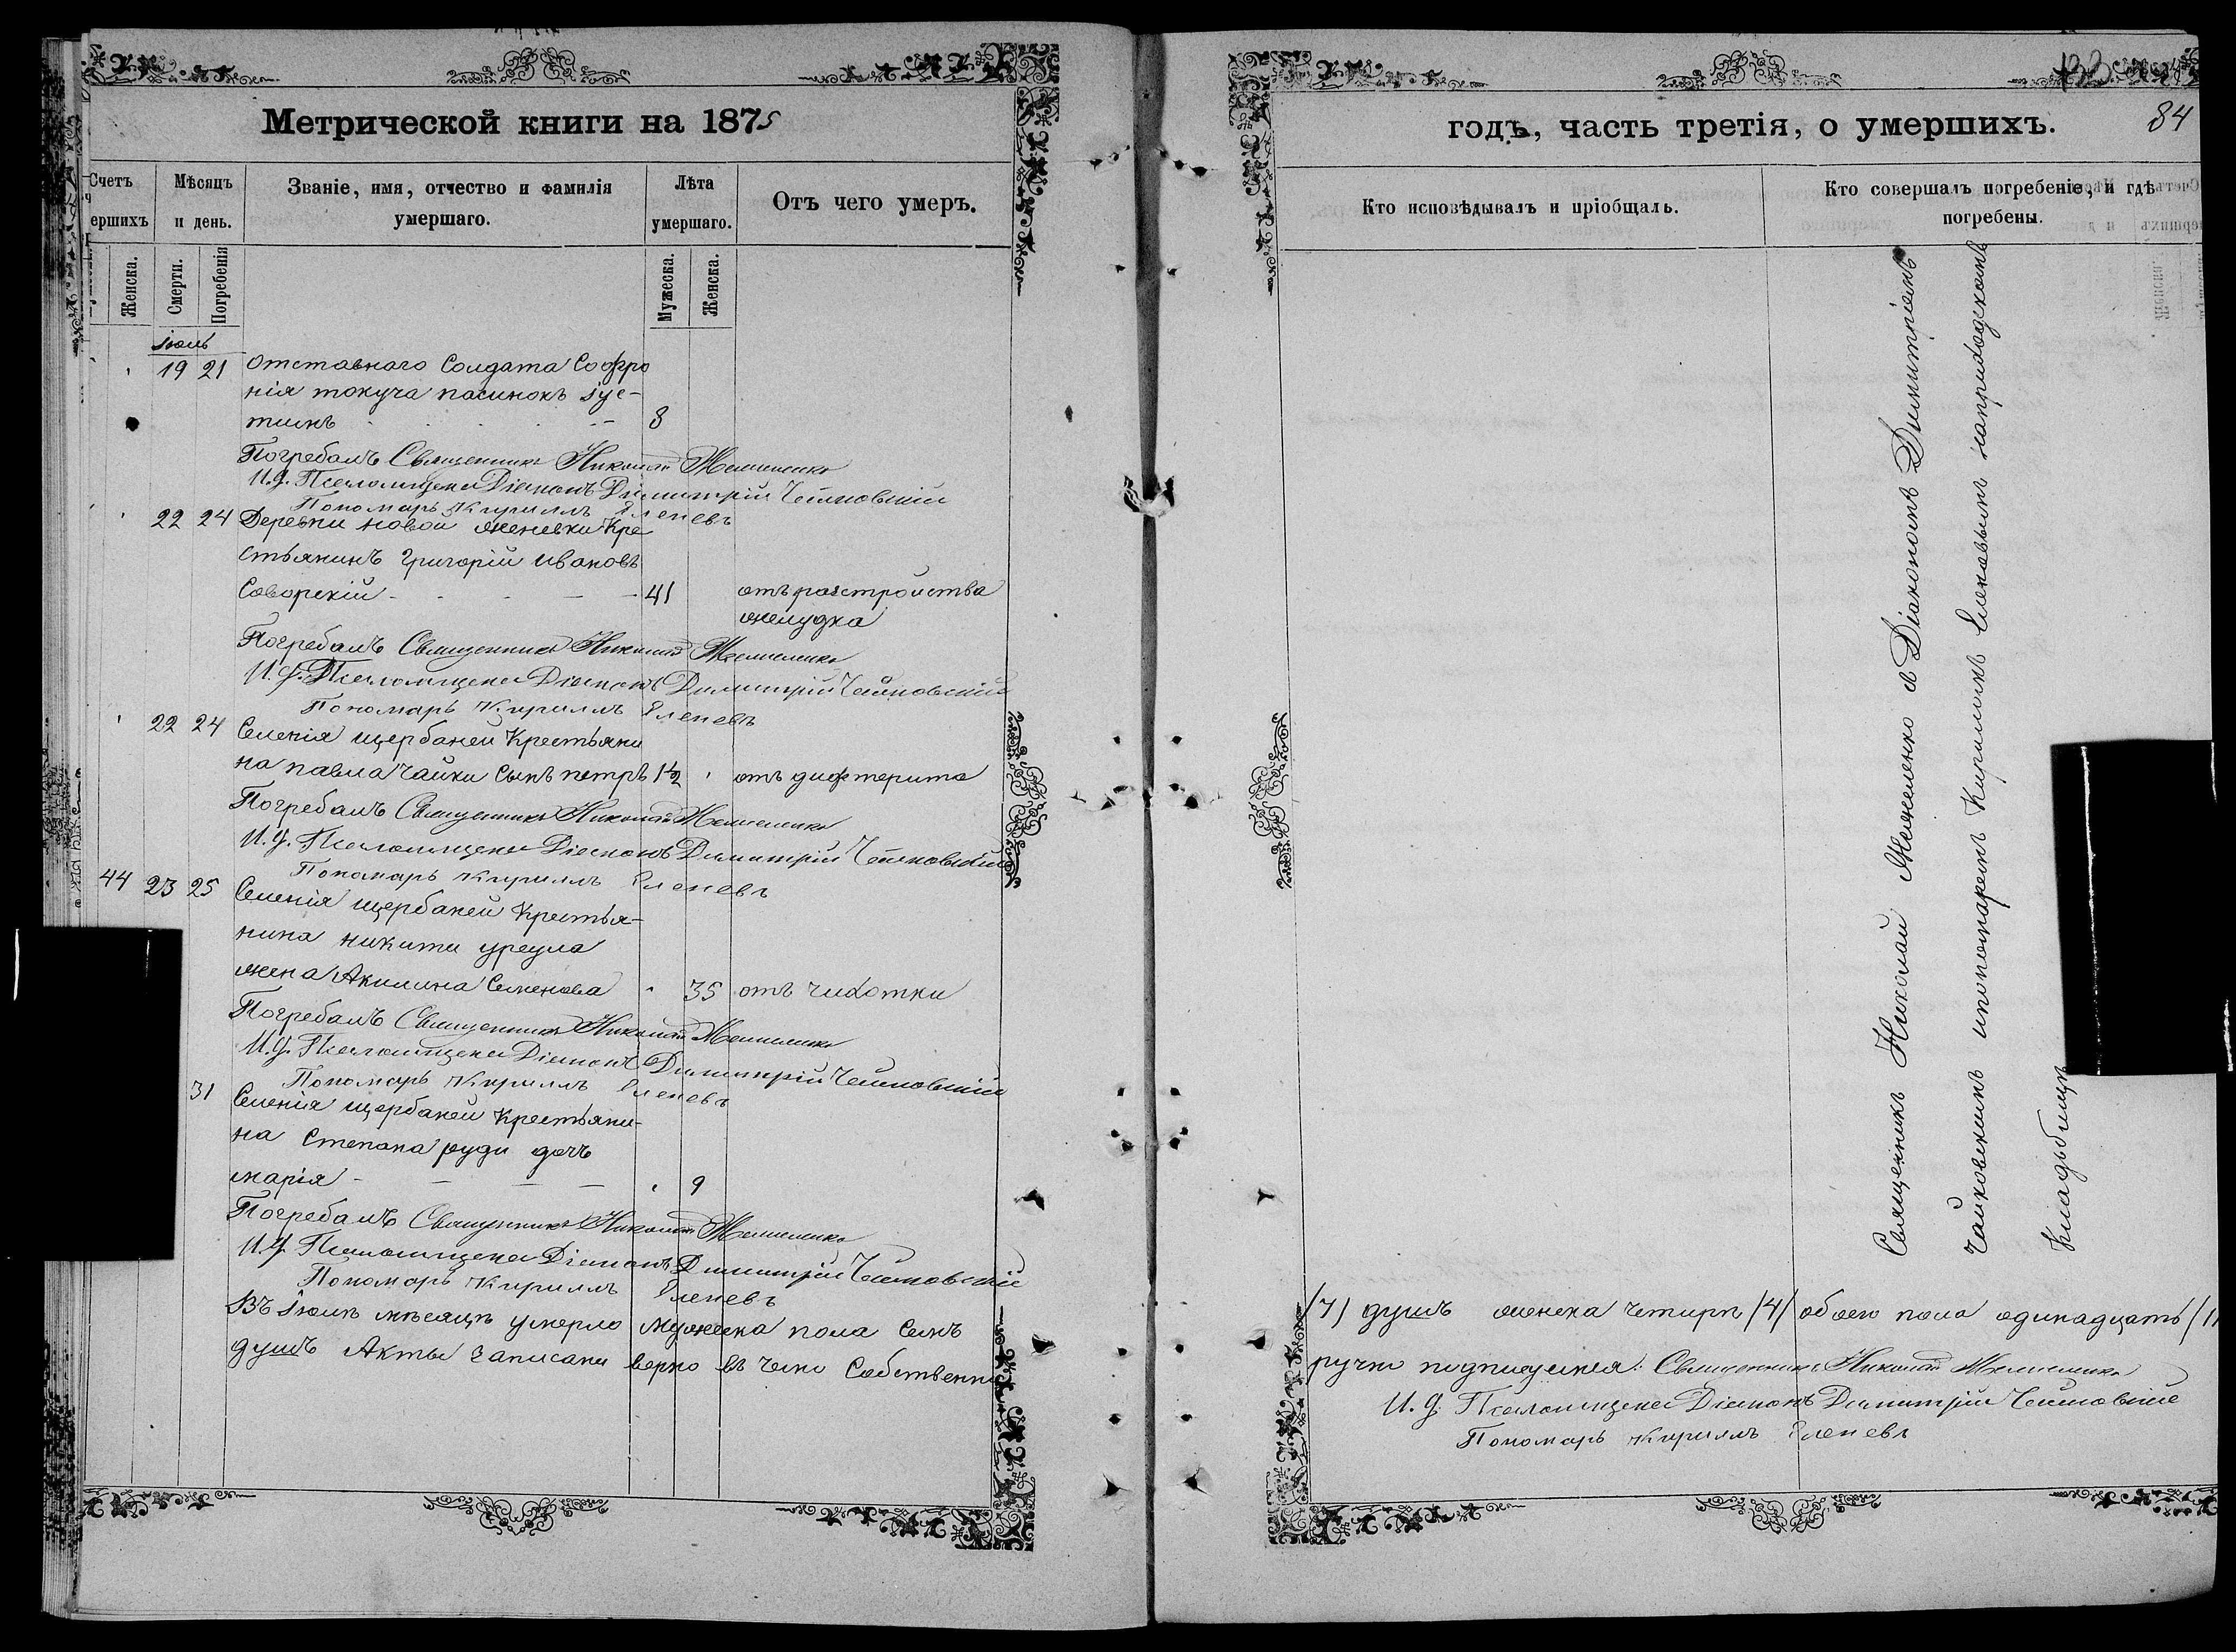 Метрической книги на 1875
Счетъ
ершихъ
Мѣсяцъ
и день.
Званіе, имя, отчество и фамилія
умершаго.
Лѣта
умершаго.
Отъ чего умеръ.
Женска.
Смерти.
Погребенія
Мужеска.
Женска.
Іюль
19 21 Отставнаго Солдата Софро
нія токуча пасинокъ Іус-
тинъ 8
Погребалъ Священникъ Николай
И. д. Псаломщика Діаконъ Димитрій Чайковскій
Пономарь Кириллъ Еленевъ
22 24 Деревни новой Кре
стьянинъ Григорій Ивановъ
Саворскій 41 отъ разстройства
желудка
Погребалъ Священникъ Николай
И. д. Псаломщика Діаконъ Димитрій Чайковскій
Пономарь Кириллъ Еленевъ
22 24 Селенія щербаней Крестьяни
на павла Чайки Сынъ петръ 1½ отъ дифтерита
Погребалъ Священникъ Николай
И. д. Псаломщика Діаконъ Димитрій Чайковскій
Пономарь Кириллъ Еленевъ
44 23 25 Селенія щербаней Крестья-
нина никити урсула
жена Акилина Семенова 35 отъ чихотки
Погребалъ Священникъ Николай
И. д. Псаломщика Діаконъ Димитрій Чайковскій
Пономарь Кириллъ Еленевъ
31 Селенія щербаней Крестьяни-
на Степана руди дочь
марія 9
Погребалъ Священникъ Николай
И. д. Псаломщика Діаконъ Димитрій Чайковскій
Пономарь Кириллъ Еленевъ
Въ Іюлѣ мѣсяцѣ умерло мужеска пола Семъ
душъ Акты записани верно въ чемъ Собственно
84
годъ, часть третія, о умершихъ.
Кто исповѣдывалъ и пріобщалъ.
Кто совершалъ погребеніе, и гдѣ
погребены.
Священникъ Николай с Діакономъ Димитріемъ
Чайковскимъ ипономаремъ Кириломъ Еленевымъ наприходскомъ
Кладбищѣ
/7/ душъ женска четири /4/ обоего пола одинадцать /11
ручно подписуемся: Священникъ Николай
И. д. Псаломщика Діаконъ Димитрій Чайковскій
Пономарь Кириллъ Еленевъ